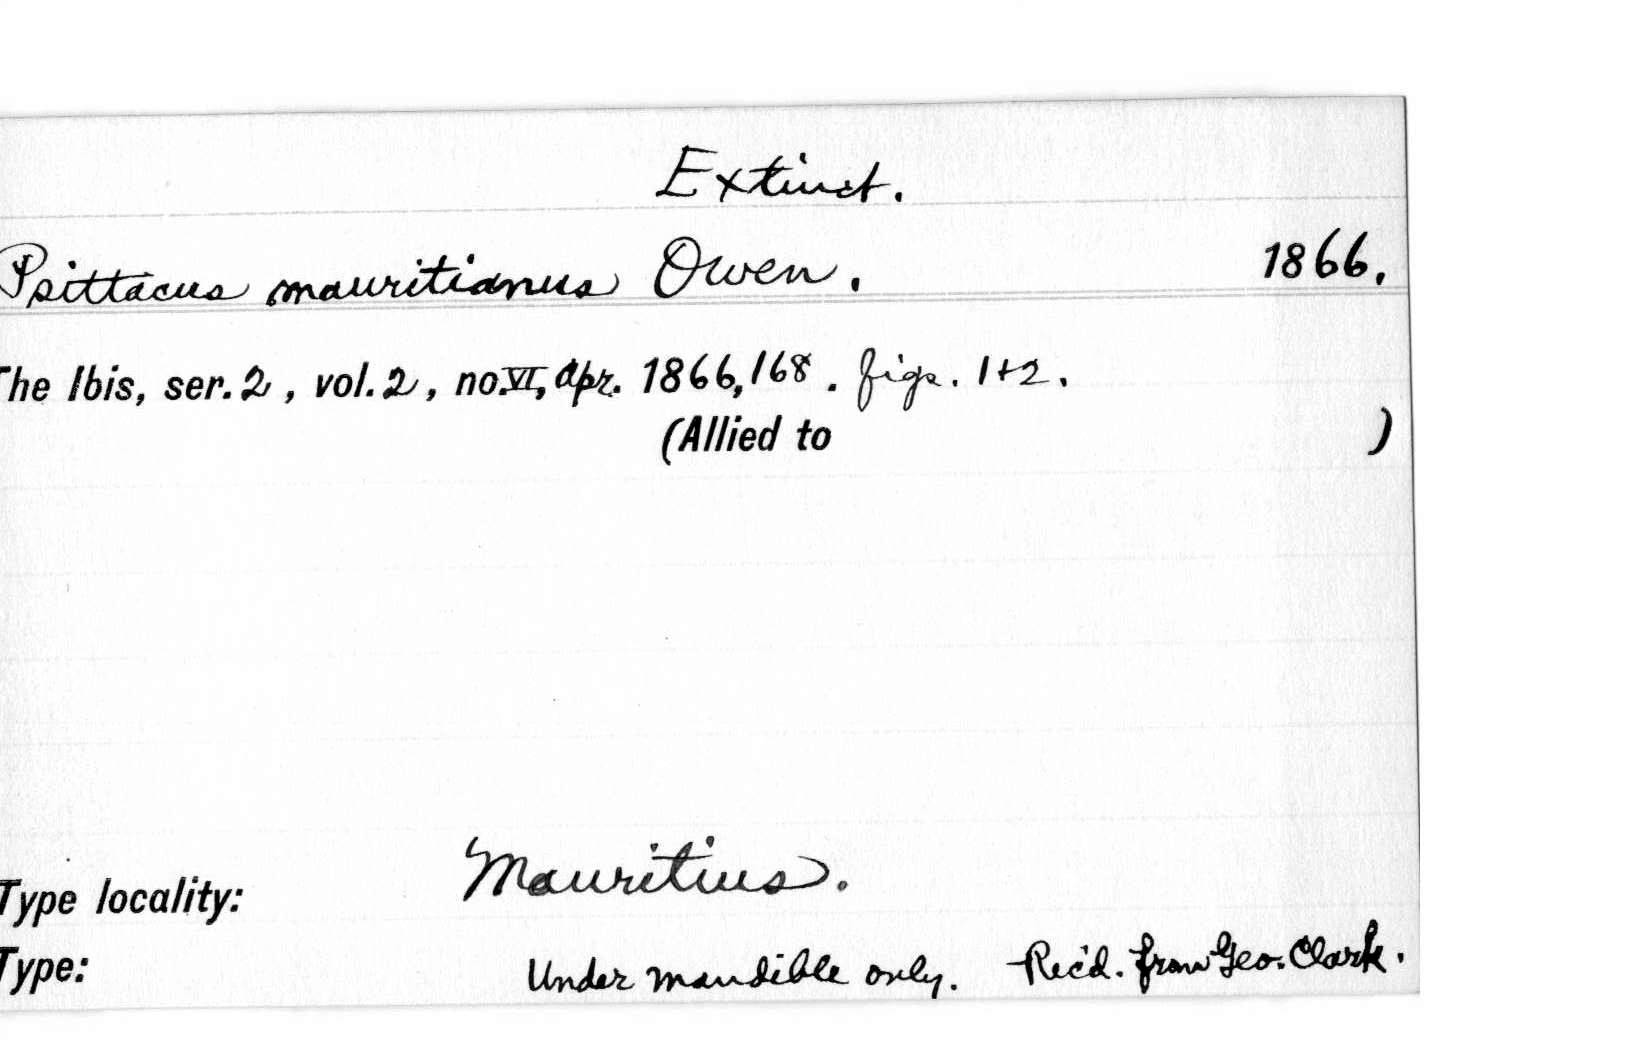 Extinct.
Psittacus mauritianus Owen. 1866.
The Ibis, ser. 2, vol. 2, no. VI, Apr. 1866, 168. figs. 1+2.
(Allied to )
Type locality: Mauritius.
Type: Under mandible only. Rec'd. from Geo. Clark.